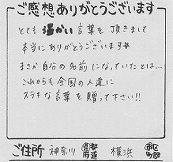 ご感想ありがとうございます
とても温かい言葉を頂きまして
本当にありがとうございます
まさか自分の名前になっていたとは…
これからも全国の人達に
ステキな言葉を贈って下さい!!
ご住所 神奈川 都道府県 横浜 市区